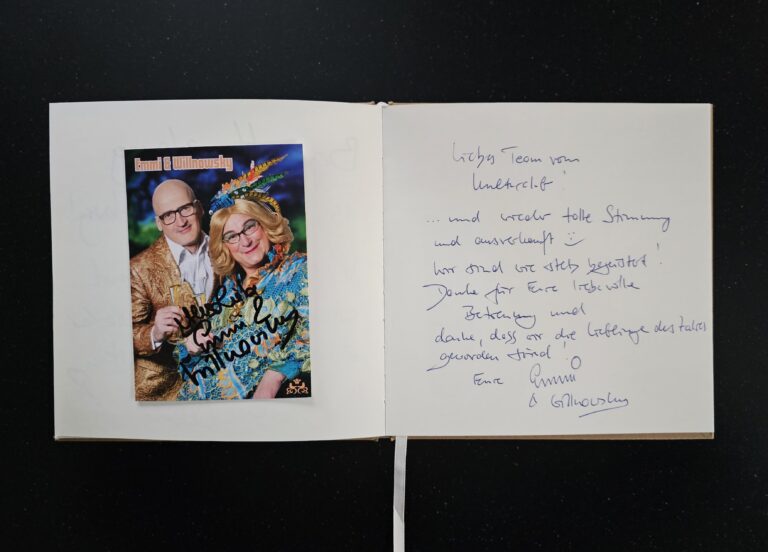 Emmi & Willnowsky
Alles Liebe
Emmi &
Willnowsky
Liebes Team vom
!
... und wieder tolle Stimmung
und ausverkauft :-)
Wir sind wie stets begeistert!
Danke für Eure liebevolle
Betreuung und
danke, dass wir die Lieblinge des Jahres
geworden sind!
Eure Emmi
& Willnowsky